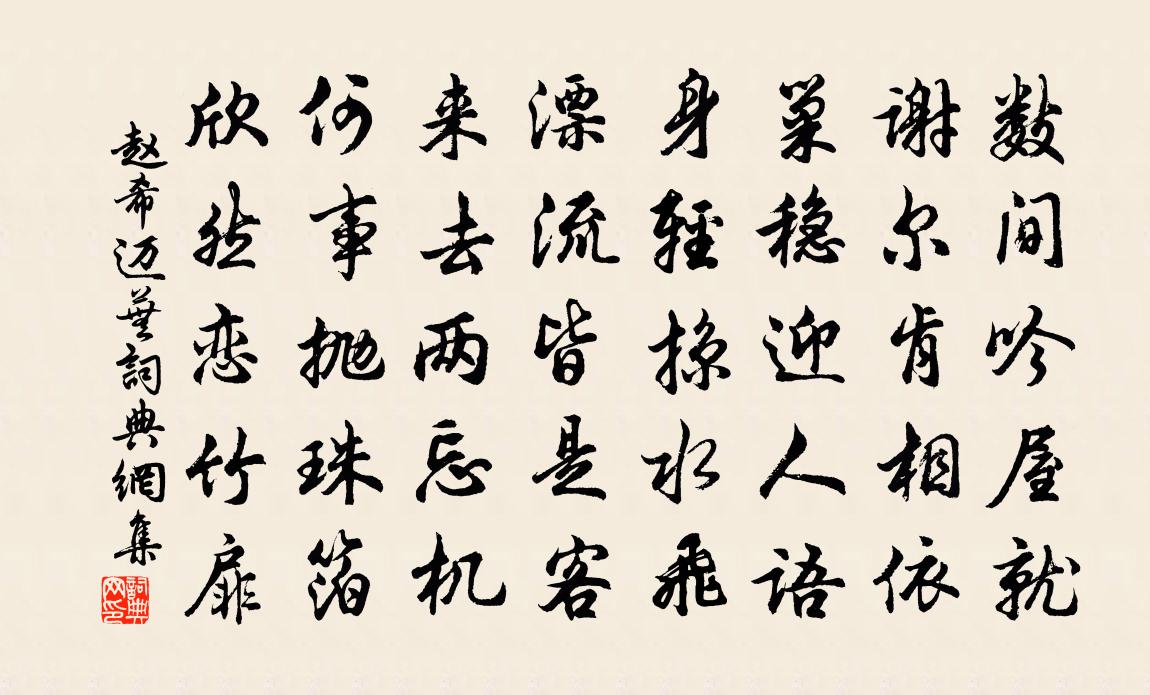 数间吟屋就
谢尔肯相依
巢稳迎人语
身輕掠水飛
漂流皆是客
来去两忘机
何事抛珠箔
欣然恋竹扉
赵希迈葉詞典網集
詞典网印